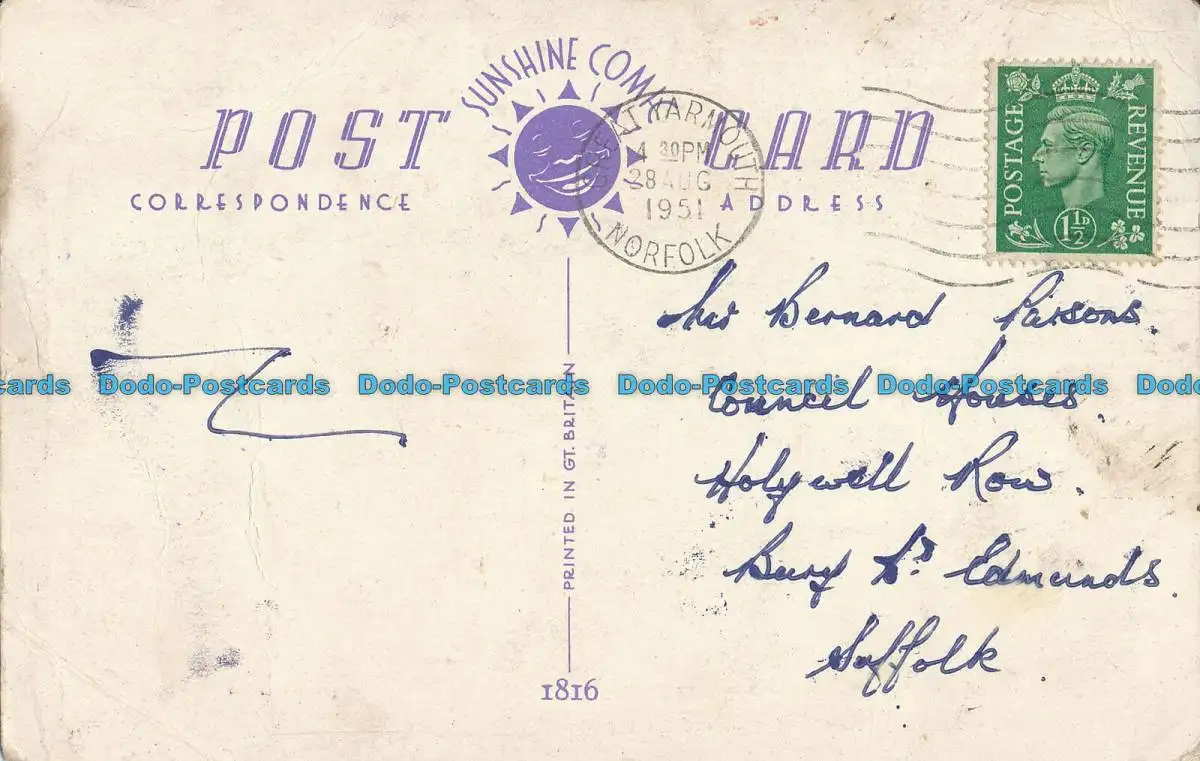 SUNSHINE COM
POST CARD
CORRESPONDENCE
ADDRESS
GREAT YARMOUTH
4 30PM
28 AUG
1951
NORFOLK
POSTAGE
REVENUE
1½D
Bernard Parsons.
Council Houses.
Holywell Row.
Bury St Edmunds.
Suffolk
cards Dodo-Postcards Dodo-Postcards Dodo-Postcards Dodo-Postcards Dodo
PRINTED IN GT. BRITAIN
1816